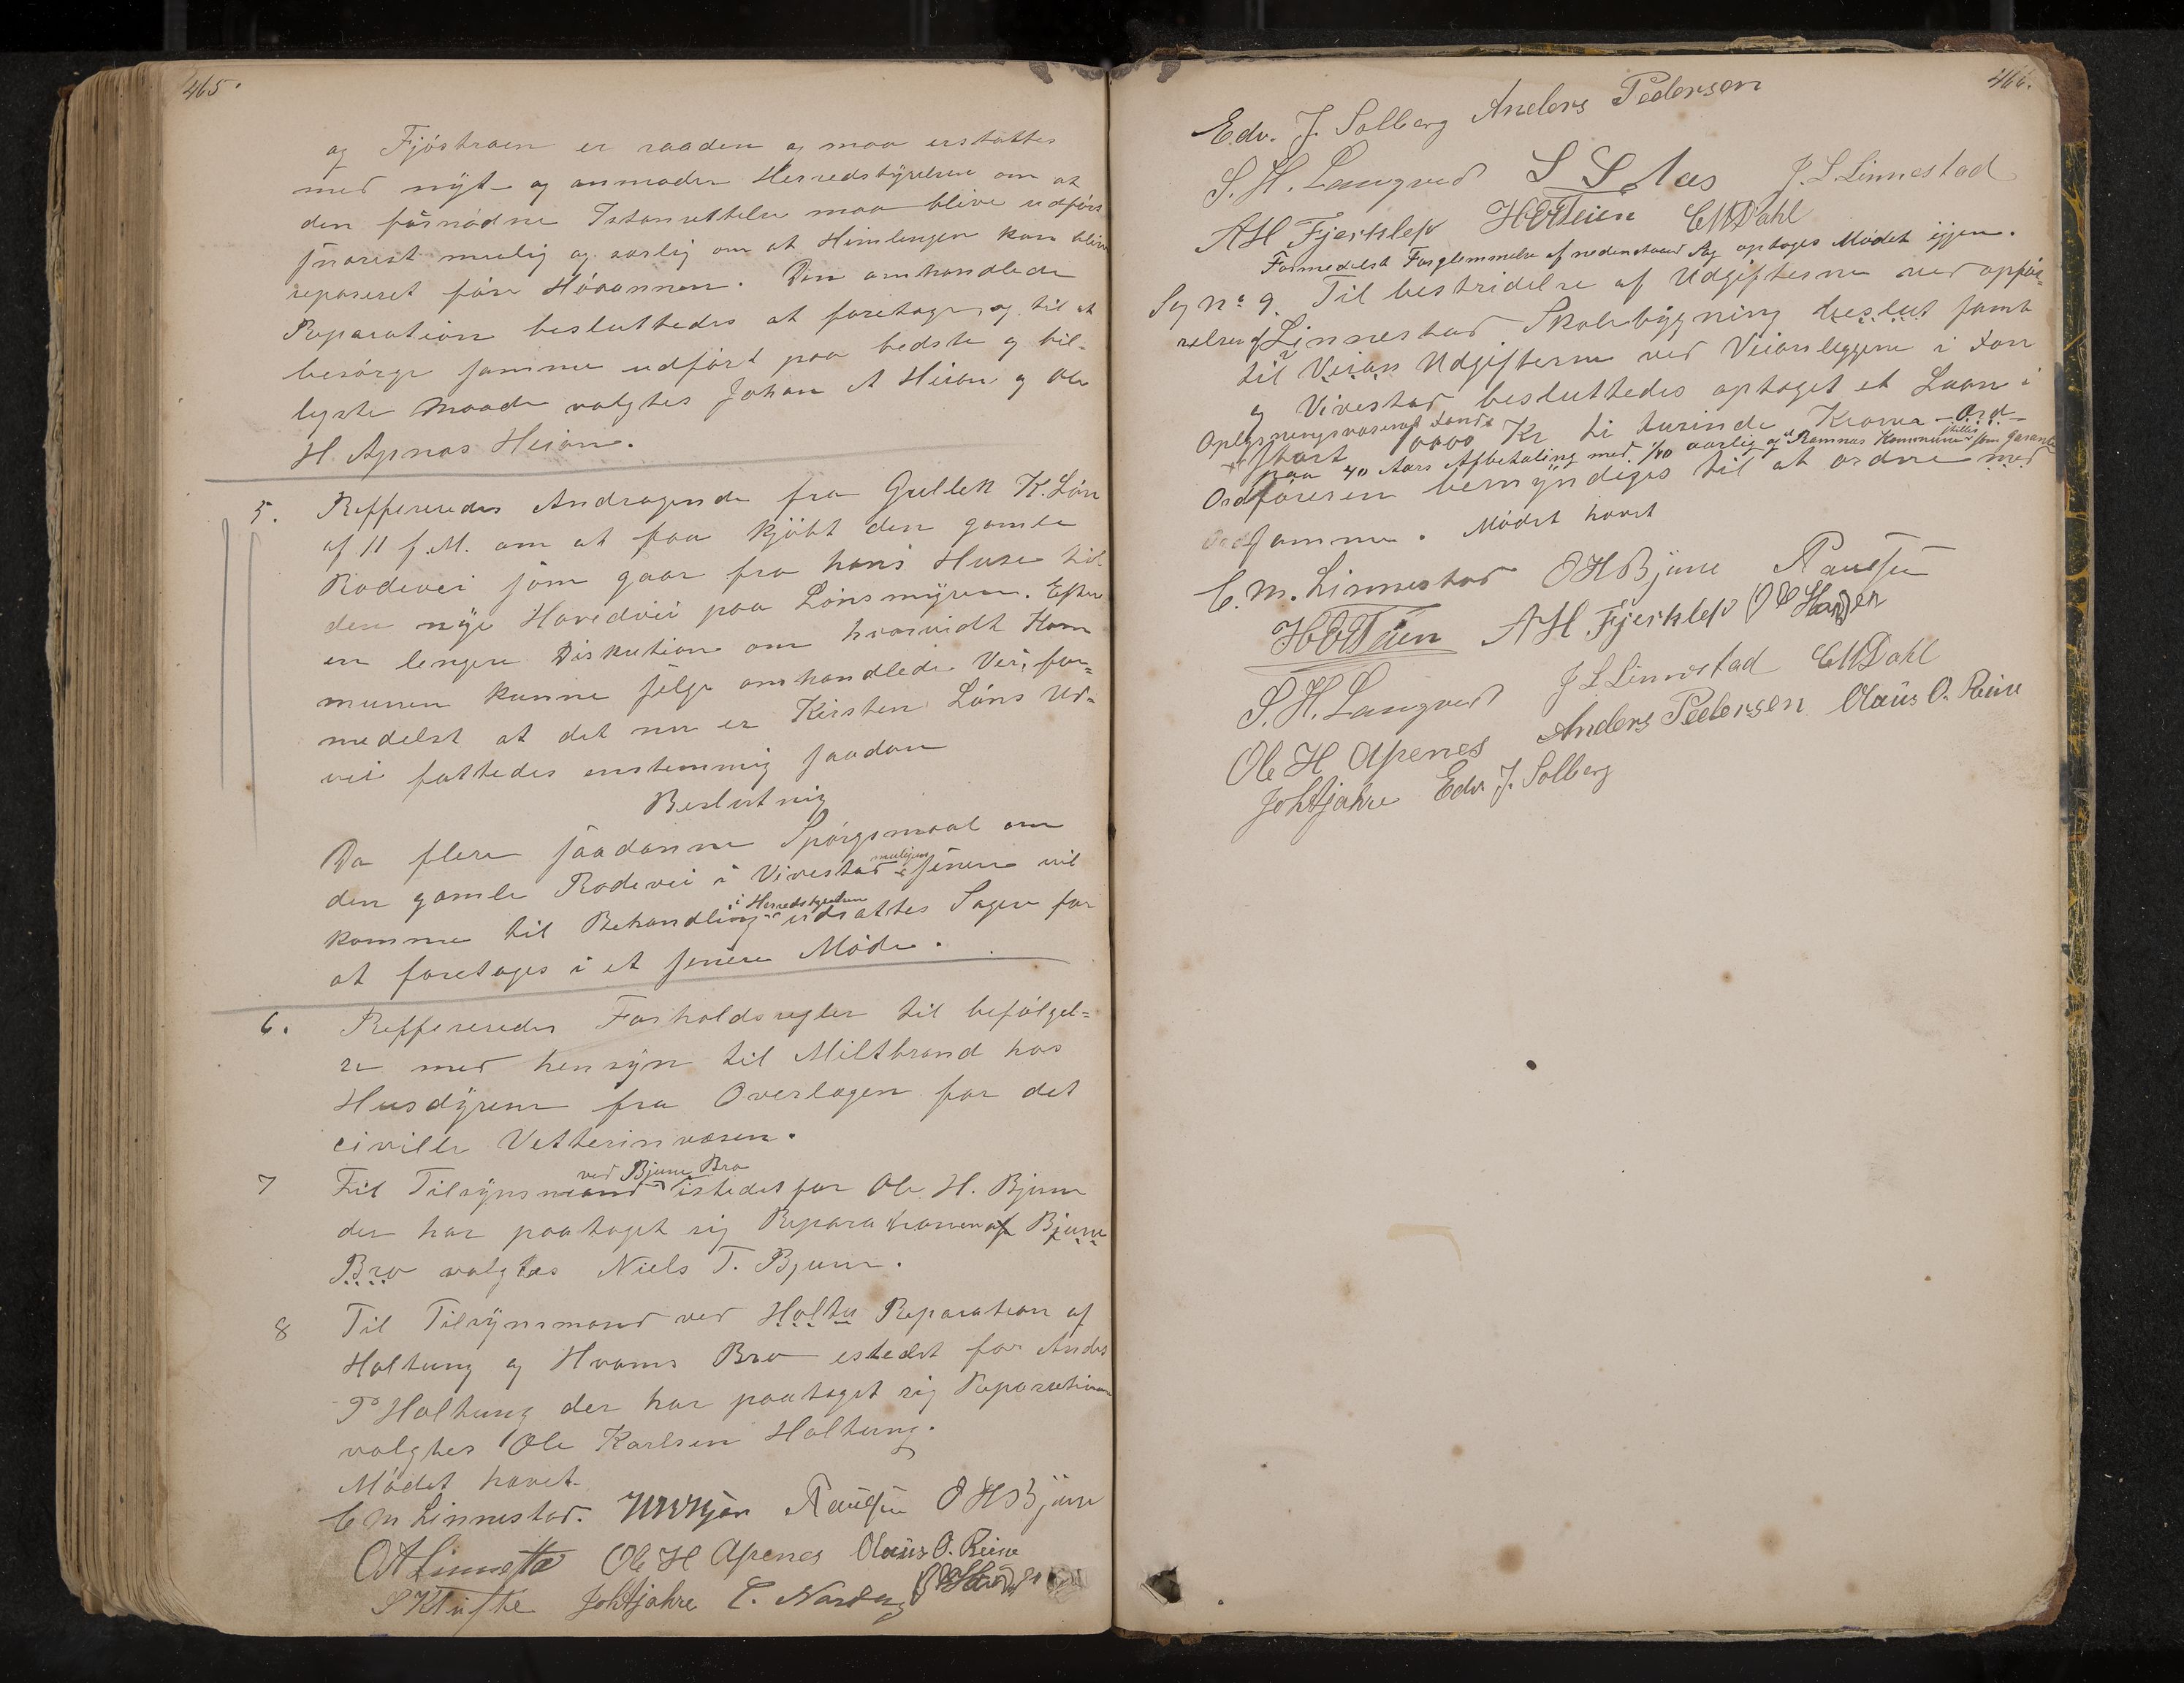 465.
og Fjøstraen er raaden og maa erstattes
med nyt og anmoder Herredstyrelsen om at
den fornødne Istansettelse maa blive udført
snarest muelig og særlig om at Himlingen kan blive
repareret føre Høvannen. Den omhandlede
Reparation besluttedes at foretage, og til at
besørge samme udført paa bedste og bil-
ligste Maade valgtes Johan A Heian og Ole
H. Apnæs Heian.
5. Reffereredes Andragende fra Gullek K. Lön
af 11 f. M. om at faa kjöbt den gamle
Rodevei som gaar fra hans Huse til
den nye Hovedvei paa Lönsmyren. Efter
en lengere Diskution om hvorvidt Kom
munen kunne selge omhandlede Vei, for-
medelst at det nu er Kirsten Löns Ud-
vei fattedes enstemmig saadan
Beslutnig
Da flere saadanne Spörgsmaal om
den gamle Rodevei i Vivestad muligens senere vil
komme til Behandling i Herredstyrelsen udsattes Sagen for
at foretages i et senere Möde.
6. Reffereredes Forholdsregler til befölgel=
se med hensyn til Miltbrand hos
Husdyrene fra Overlægen for det
civille Vetterinvæsen.
7 Til Tilsynsmand ved Bjune Bro istedet for Ole H. Bjune
der har paataget sig Reparationen af Bjune
Bro valgtes Niels T. Bjune.
8 Til Tilsynsmand ved Holtu Reparation af
Holtung og Hvams Bro istedet for Anders
P Holtung der har paataget sig Reparationen
valgtes Ole Karlsen Holtung.
Mödet hævet
C M Linnestad. Paulsen O H Bjune
Ole H Apenes Olaus O. Reine
S Klufte Joh Hjahre
466.
Edv. J. Solberg Anders Pedersen
S. H. Langved S S Aas J. L. Linnestad
A H Fjerklep H O Teien C M Dahl
Formedelst Forglemmelse af nedenstaaend Sag optages Mödet igjen.
Sag No 9. Til bestridelse af Udgifterne ved opför-
elsen af Linnestad Skolebygning beslut samt
til Veian Udgifterne ved Veianleggene i Fon
og Vivestad besluttedes optaget et Laan i
Oplysningsvæsenets Fond
stort 10000 Kr ti tusinde Kroner – Ord –
paa 40 Aars Afbetaling med 1/40 aarlig og Ramnæs Kommune stilles som Garanti
Ordföreren bemyndiges til at ordne med
samme. Mödet hævet
C. M. Linnestad O H Bjune Paulsen
H O Teien A H Fjerklep
S. H. Langved J L Linnestad C M Dahl
Ole H Apenes Anders Pedersen Olaus O. Reine
Joh Hjahre Edv. J. Solberg